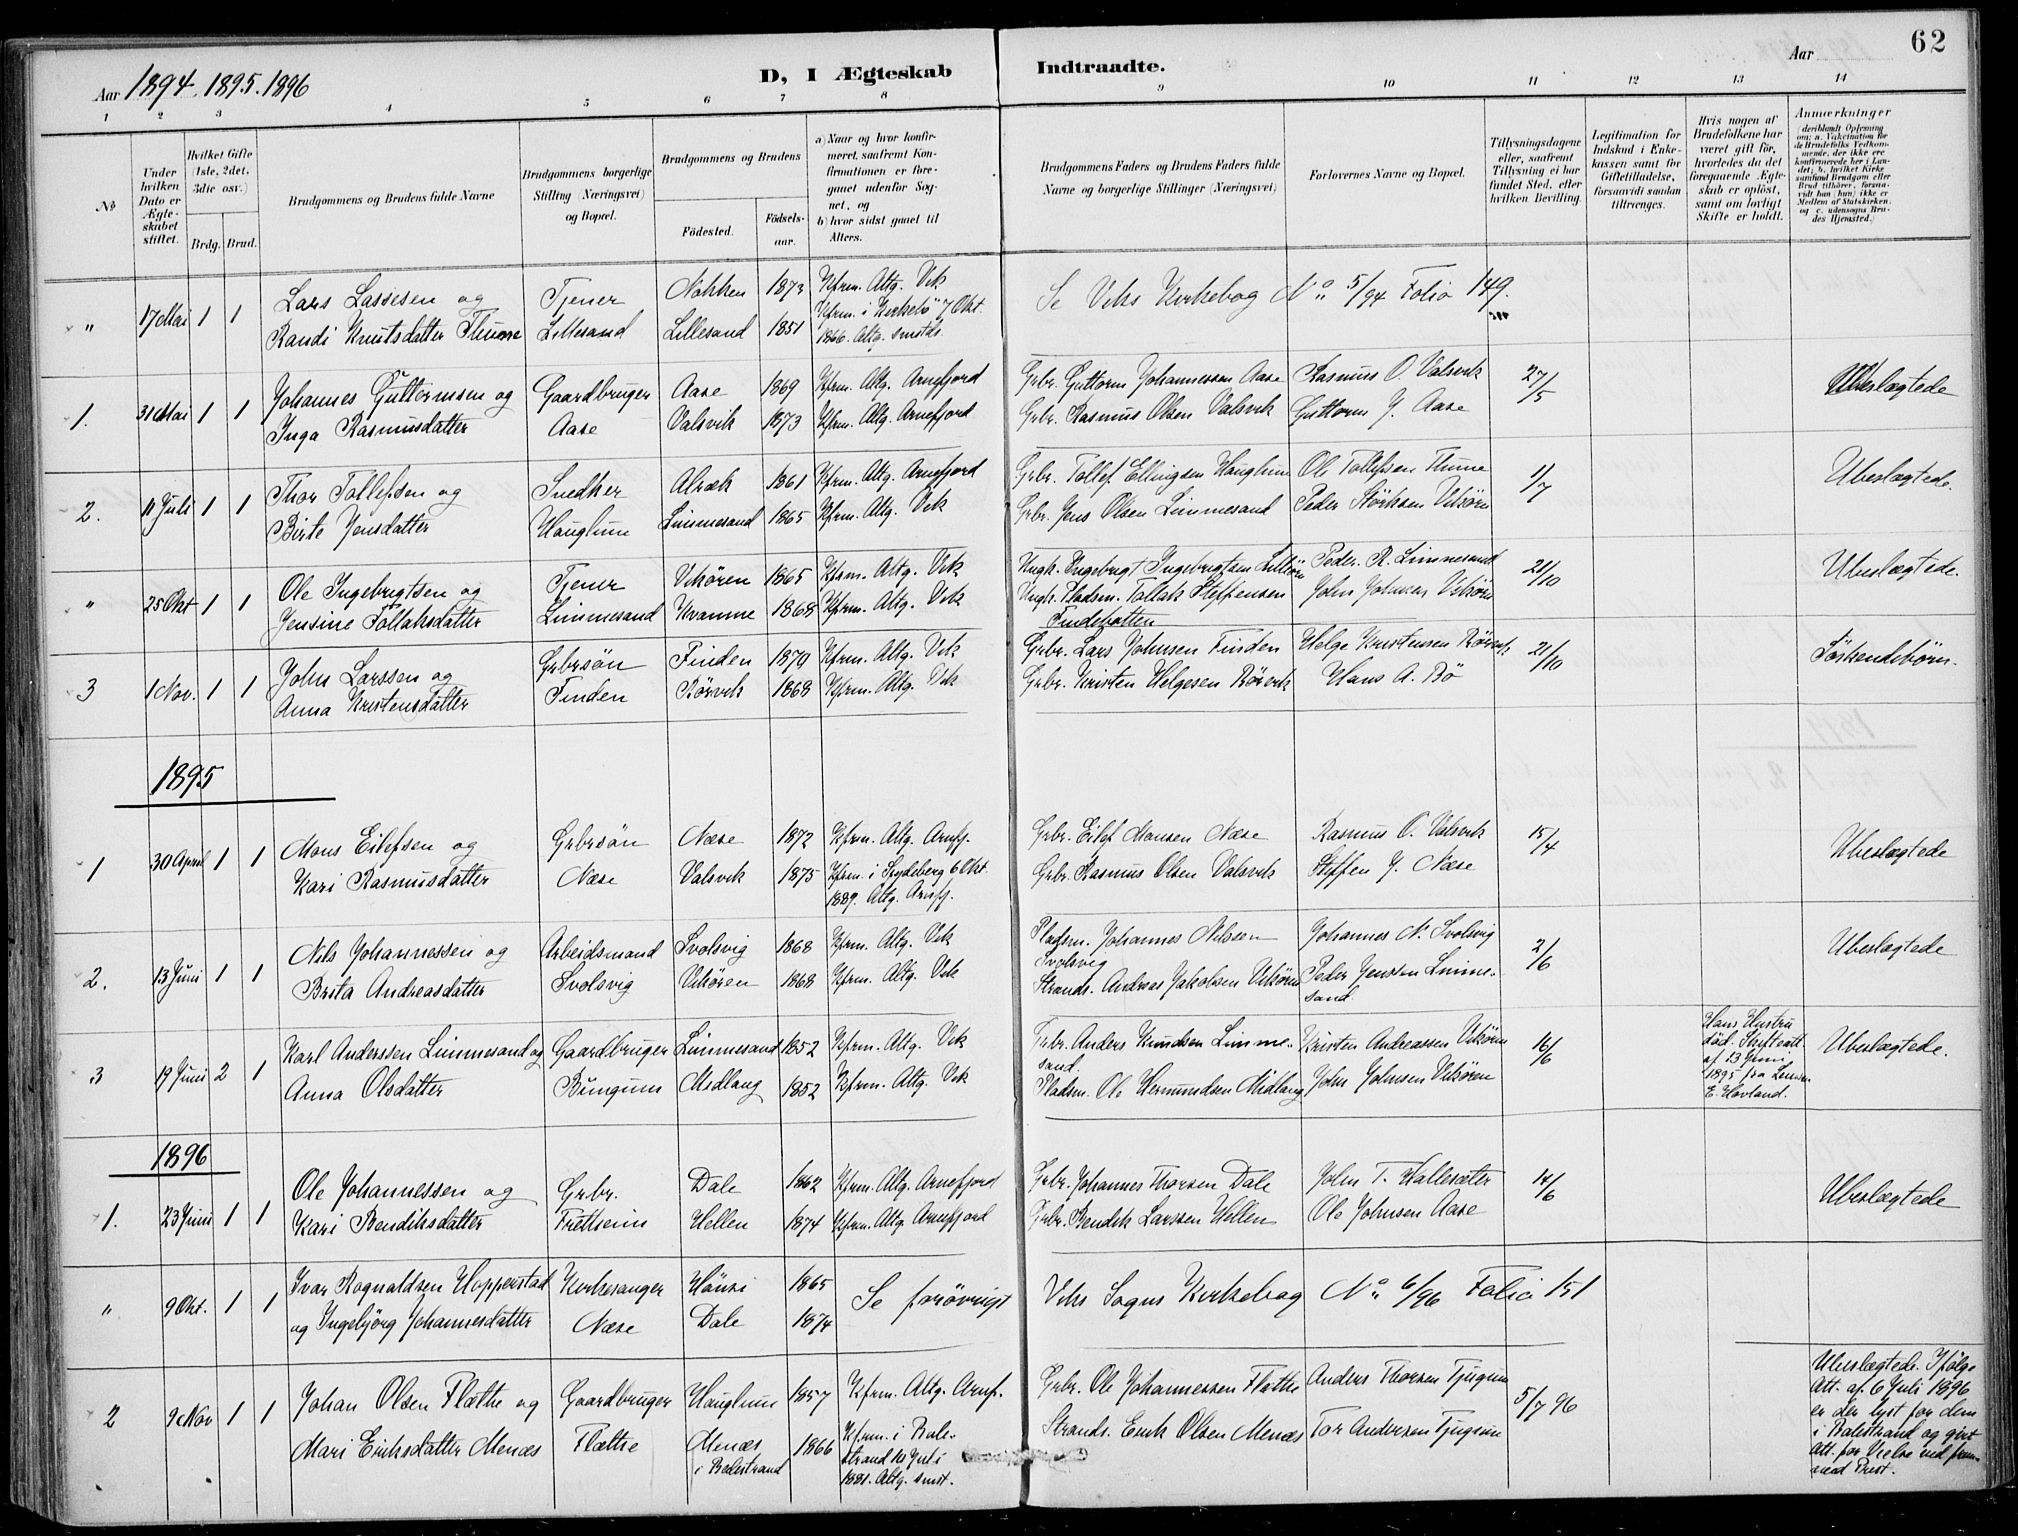 62
Aar 1894. 1895. 1896
D, I Ægteskab Indtraadte.
Aar
1 2 3 4 5 6 7 8 9 10 11 12 13 14
№
Under hvilken Dato er Ægteskabet stiftet.
Hvilket Gifte (1ste, 2det, 3die osv.)
Brdg. Brud.
Brudgommens og Brudens fulde Navne
Brudgommens borgerlige Stilling (Næringsvei) og Bopæl.
Brudgommens og Brudens
Födested. Födselsaar.
a) Naar og hvor konfirmeret, saafremt Konfirmationen er foregaaet udenfor Sognet, og
b) hvor sidst gaaet til Alters.
Brudgommens Faders og Brudens Faders fulde Navne og borgerlige Stillinger (Næringsvei)
Forlovernes Navne og Bopæl.
Tillysningsdagene eller, saafremt Tillysning ei har fundet Sted, efter hvilken Bevilling.
Legitimation for Indskud i Enkekassen samt for Giftetilladelse, forsaavidt saadan tiltrænges.
Hvis nogen af Brudefolkene har været gift för, hvorledes da det foregaaende Ægteskab er oplöst, samt om lovligt Skifte er holdt.
Anmærkninger
" 17 Mai 1 1 Lars Lassesen og Tjener Nohken 1873 Kfrm. Altg. Vik
Randi Knutsdatter Thune Lillesand Lillesand 1851 Kfrm. i Kirkebö 7 Okt. 1866. Altg. smstds.
Se Viks Kirkebog No 5/94 Folio 149.
1. 31 Mai 1 1 Johannes Guttormsen og Gaardbruger Aase 1869 Kfrm. Altg. Arnefjord Grbr. Guttorm Johannessen Aase Rasmus O. Valsvik 27/5 Ubeslægtede
Inga Rasmusdatter Aase Valsvik 1873 Kfrm. Altg. Arnefjord Grbr. Rasmus Olsen Valsvik Guttorm J. Aase
2. 11 Juli 1 1 Thor Tollefsen og Snedker Alræk 1861 Kfrm. Altg. Arnefjord Grbr. Tollef Ellingsen Hauglum Ole Tollefsen Thune 1/7 Ubeslægtede.
Birte Jensdatter Hauglum Limmesand 1865 Kfrm. Altg. Vik Grbr. Jens Olsen Limmesand Peder Störksen Vikören
" 25 Okt 1 1 Ole Ingebrigtsen og Tjener Vikören 1865 Kfrm. Altg. Vik Ungk. Ingebrigt Ingebrigtsen Peder R. Limmesand 21/10 Ubeslægtede.
Jensine Tollaksdatter Limmesand Kvamme 1868 Kfrm. Altg. Vik Ungk. Pladsm. Tollak Steffensen Findebotten John Johnsen Vikören
3 1 Nov. 1 1 John Larssen og Grbrsön Finden 1870 Kfrm. Altg. Vik Grbr. Lars Johnsen Finden Helge Kristensen Börvik 21/10 Söskendebörn.
Anna Kristensdatter Finden Börvik 1868 Kfrm. Altg. Vik Grbr. Kristen Helgesen Börvik Hans A. Bö
1895
1 30 April 1 1 Mons Eilefsen og Grbrsön Næse 1872 Kfrm. Altg. Arnfj. Grbr. Eilef Monsen Næse Rasmus O. Valsvik 15/4 Ubeslægtede
Kari Rasmusdatter Næse Valsvik 1875 Kfrm. i Spydeberg 6 Okt. 1889. Altg. Arnfj. Grbr. Rasmus Olsen Valsvik Steffen J. Næse
2. 13 Juni 1 1 Nils Johannessen og Arbeidsmand Svolsvig 1868 Kfrm. Altg. Vik Pladsm. Johannes Nilssen Svolsvig Johannes N. Svolsvig 2/6 Ubeslægtede
Brita Andreasdatter Svolsvig Vikören 1868 Kfrm. Altg. Vik Strands. Andreas Jakobsen Vikören Peder Jenssen Limmesand
3 19 Juni 2 1 Karl Anderssen Limmesand og Gaardbruger Limmesand 1852 Kfrm. Altg. Vik Grbr. Anders Knudsen Limmesand. Kristen Andreassen Vikören 16/6 Hans Hustru död. Skifteatt. af 13 Juni 1895 fra Lensm. E. Hovland. Ubeslægtede.
Anna Olsdatter Bungum Midlang 1852 Kfrm. Altg. Vik Pladsm. Ole Hermundsen Midlang John Johnsen Vikören
1896
1. 23 Juni 1 1 Ole Johannessen og Grbr. Dale 1862 Kfrm. Altg. Arnefjord Grbr. Johannes Thorsen Dale John T. Hallesæter 14/6 Ubeslægtede
Kari Bendiksdatter Fretheim Hellen 1874 Kfrm. Altg. Arnefjord Grbr. Bendik Larssen Hellen Ole Johnsen Aase
" 9 Okt. 1 1 Ivar Rognaldsen Hopperstad Kirkesanger Hönsi 1865 Se forövrigt Viks Sogns Kirkebog No 6/96 Folio 151
og Ingebjörg Johannesdatter Næse Dale 1874
2 9 Nov 1 1 Johan Olsen Flæthe og Gaardbruger Hauglum 1857 Kfrm. Altg. Arnf. Grbr. Ole Johannessen Flæthe Anders Thorsen Tjugum 5/7 96
Mari Eriksdatter Menæs Flæthe Menæs i Balestrand 1866 Kfrm. i Balestrand 10 Juli 1881. Altg. smst. Strands. Erik Olsen Menæs Tor Andersen Tjugum
Ubeslægtede. Ifölge Att. af 6 Juli 1896 er der lyst for dem i Balestrand og givet Att. for Vielse ved fremmed Prest.